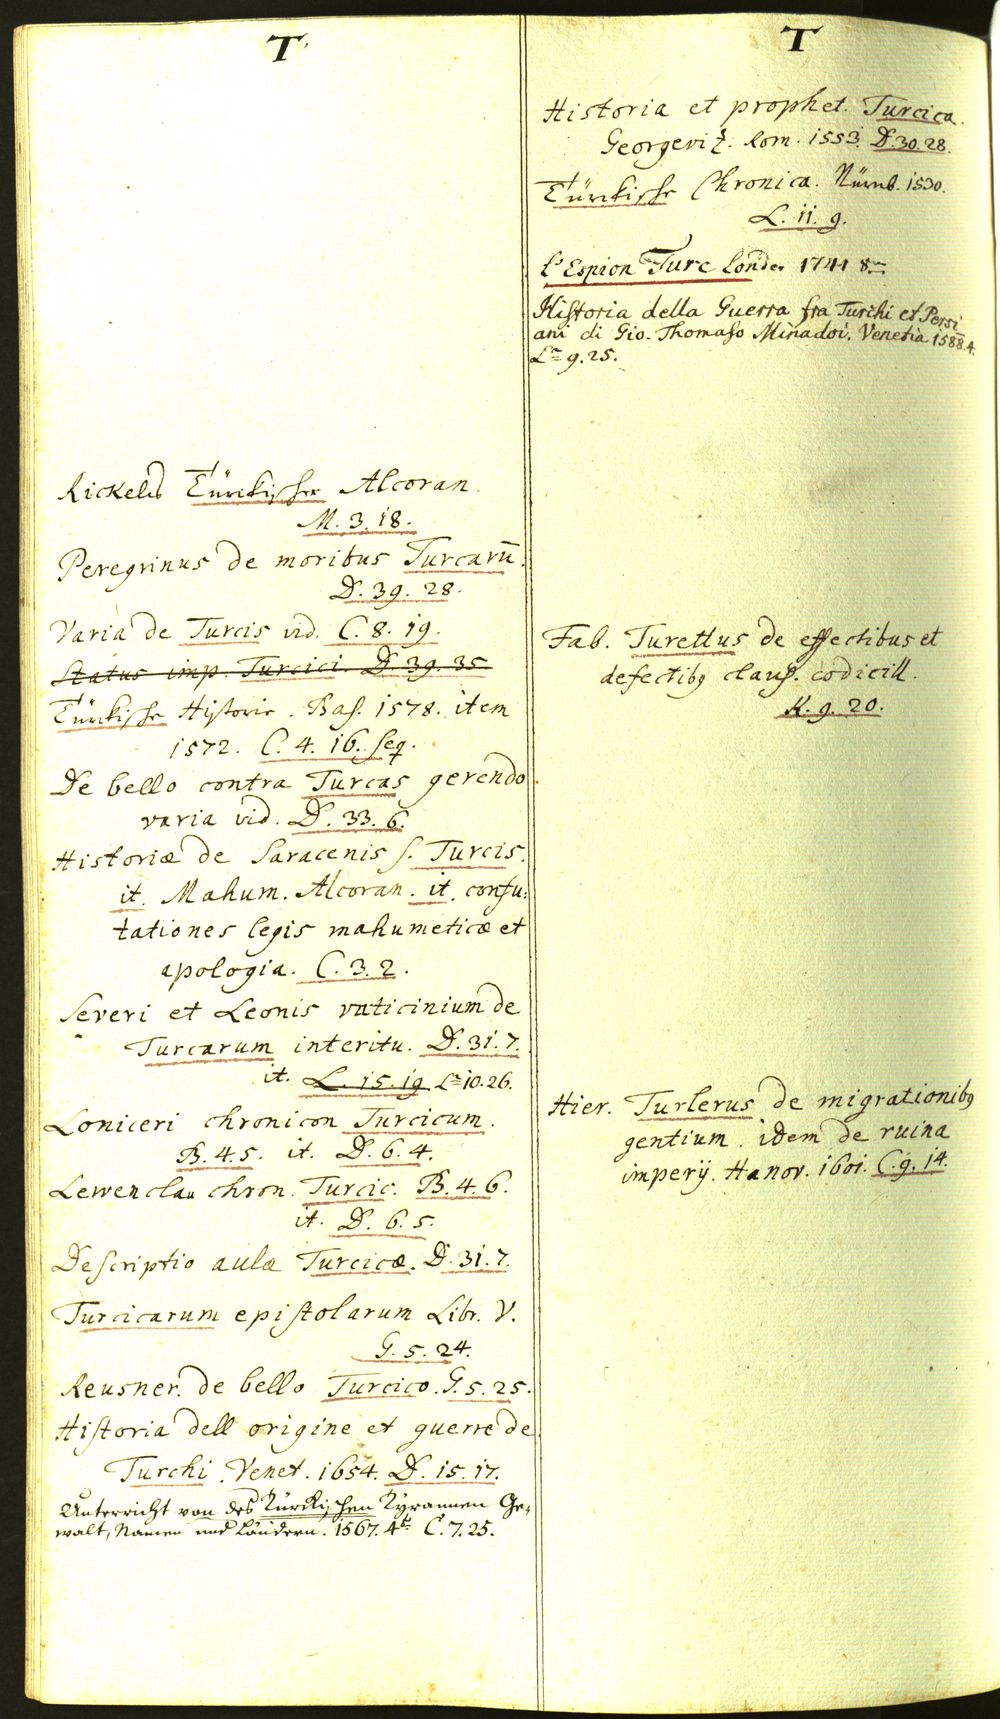 T
Rickelii Türckischer Alcoran.
M. 3. 18.
Peregrinus de moribus Turcarū.
D. 39. 28.
Varia de Turcis vid. C. 8. 19.
Status imp. Turcici. D. 39. 35
Türckische Historie. Bas. 1578. item
1572. C. 4. 16. seq.
De bello contra Turcas gerendo
varia vid. D. 33. 6.
Historiæ de Saracenis s. Turcis.
it. Mahum. Alcoran. it. confu:
tationes legis mahumeticæ et
apologia. C. 3. 2.
Severi et Leonis vaticinium de
Turcarum interitu. D. 31. 7.
it. L. 15. 19 L. 10. 26.
Loniceri chronicon Turcicum.
B. 4. 5. it. D. 6. 4.
Lewenclau chron. Turcic. B. 4. 6.
it. D. 6. 5.
Descriptio aulæ Turcicæ. D. 31. 7.
Turcicarum epistolarum Libr. V.
G. 5. 24.
Reusner. de bello Turcico. G. 5. 25.
Historia dell origine et guerre de
Turchi. Venet. 1654. D. 15. 17.
Unterricht von des Türckischen Tyrannen Ge-
walt, Namen und Ländern. 1567. 4t. C. 7. 25.
T
Historia et prophet. Turcica.
Georgevitz. Rom. 1553. D. 30. 28.
Türckische Chronica. Nürnb. 1530.
L. 11. 9.
l'Espion Turc Londr. 1741 8
Historia della Guerra fra Turchi et Persi
ani di Gio. Thomaso Minadoi. Venetia 1588. 4.
L. 9. 25.
Fab. Turettus de effectibus et
defectibꝫ claus. codicill.
K. 9. 20.
Hier. Turlerus de migrationibꝫ
gentium. idem de ruina
imperij. Hanov. 1601. C. 9. 14.